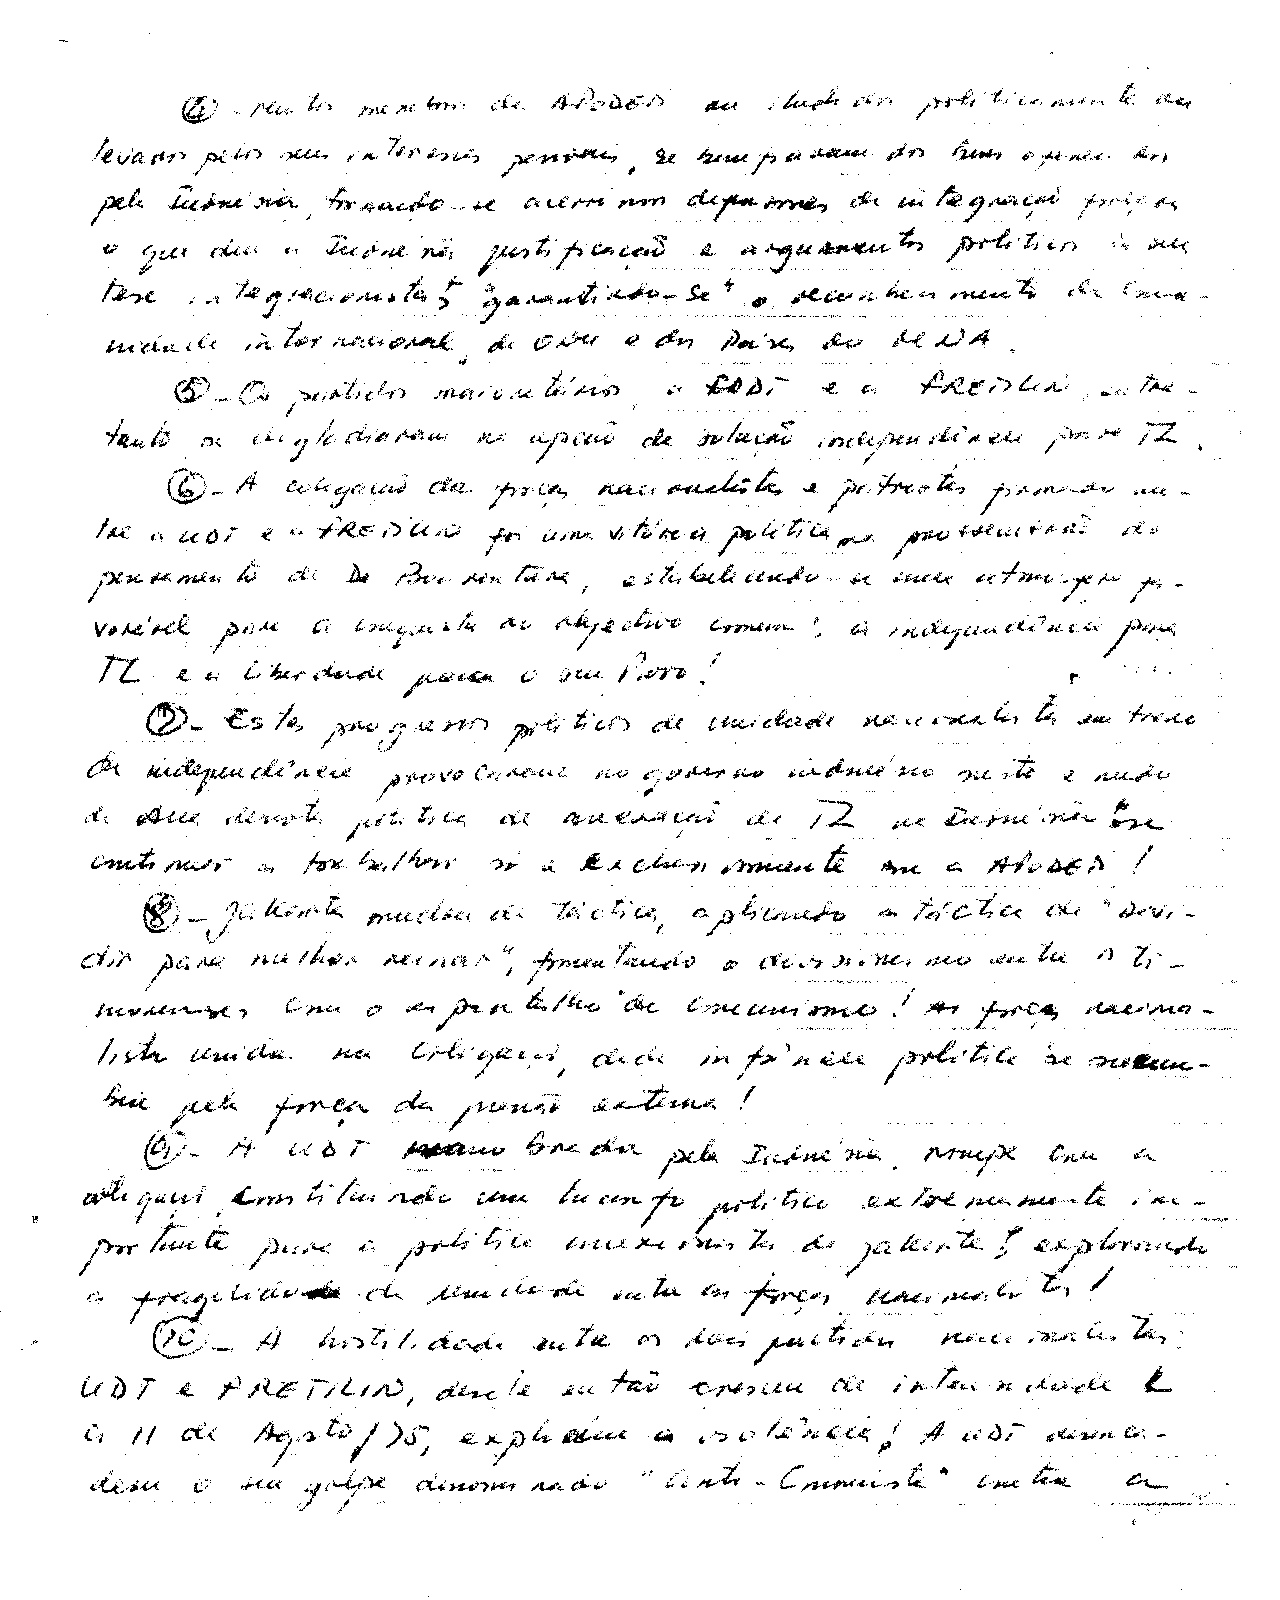 ④ - membros da APODETI ou iludidos politicamente ou
levados pelos seus interesses pessoais, se dos bens
pela Indonésia, tornando-se acerrimos defensores da integração forçosa
o que deu a Indonésia justificação e argumentos politicos à sua
tese integracionista; "garantindo-se" o reconhecimento da comu-
nidade internacional, da ONU e dos Paises do
⑤ - Os partidos maioritários, a UDT e a FRETILIN, entre-
tanto se digladiaram na opção de solução independência para TL.
⑥ - A coligação das forças nacionalistas e patriotas formada en-
tre a UDT e a FRETILIN foi uma vitória politica na prossecussão do
pensamento de De Boa ventura, estabelecendo-se uma atmosfera fa-
vorável para a conquista do objectivo comum: a independência para
TL e a liberdade para o seu Povo!
⑦ - Estes progressos politicos de unidade nacionalista em torno
da independência provocaram no governo indonésio susto e medo
da sua derrota politica de anexação de TL na Indonésia se
continuar a trabalhar só e exclusivamente com a APODETI!
⑧ - Jakarta mudou de táctica, aplicando a táctica de "Divi-
dir para melhor reinar", fomentando o divisionismo entre os Ti-
morenses com o espantalho de comunismo! As forças naciona-
lista unida na coligação, dada infância politica se sucum-
biu pela força da pressão externa!
⑨ - A UDT manobrada pela Indonésia, rompe com a
coligação, constituindo um triunfo politico extremamente im-
portante para a politica anexionista de Jakarta; explorando
a fragilidade da unidade entre as forças nacionalistas!
⑩ - A hostilidade entre os dois partidos nacionalistas:
UDT e FRETILIN, desde então cresceu de intensidade e
a 11 de Agosto/75, explodiu a violência! A UDT desenca-
deou o seu golpe denominado "Anti-Comunista" contra a